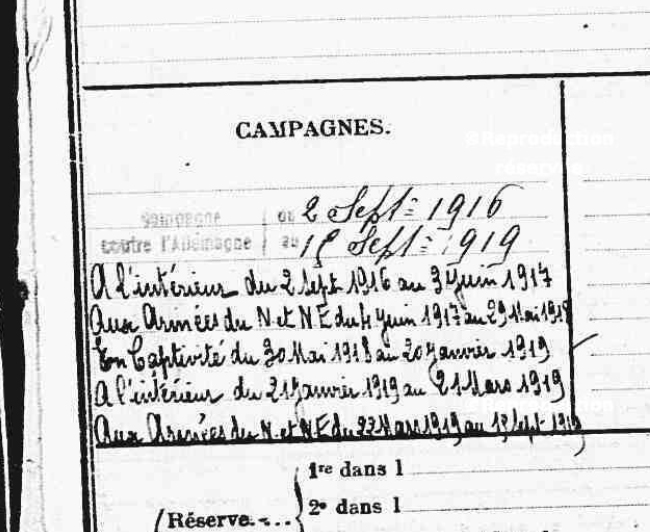 CAMPAGNES.
©Reproduction
réservée
Campagne du 2 Sept: 1916
contre l'Allemagne au Sept: 1919
A l'intérieur du 2 Sept. 1916 au 3 Juin 1917
Aux Armées du N et NE du 4 Juin 1917 au 29 Mai 1918
En Captivité du 30 Mai 1918 au 20 Janvier 1919
A l'intérieur du 21 Janvier 1919 au 21 Mars 1919
Aux Armées du N. et N E du 22 Mars 1919 au Sept. 1919
1re dans l
Réserve....
2e dans l